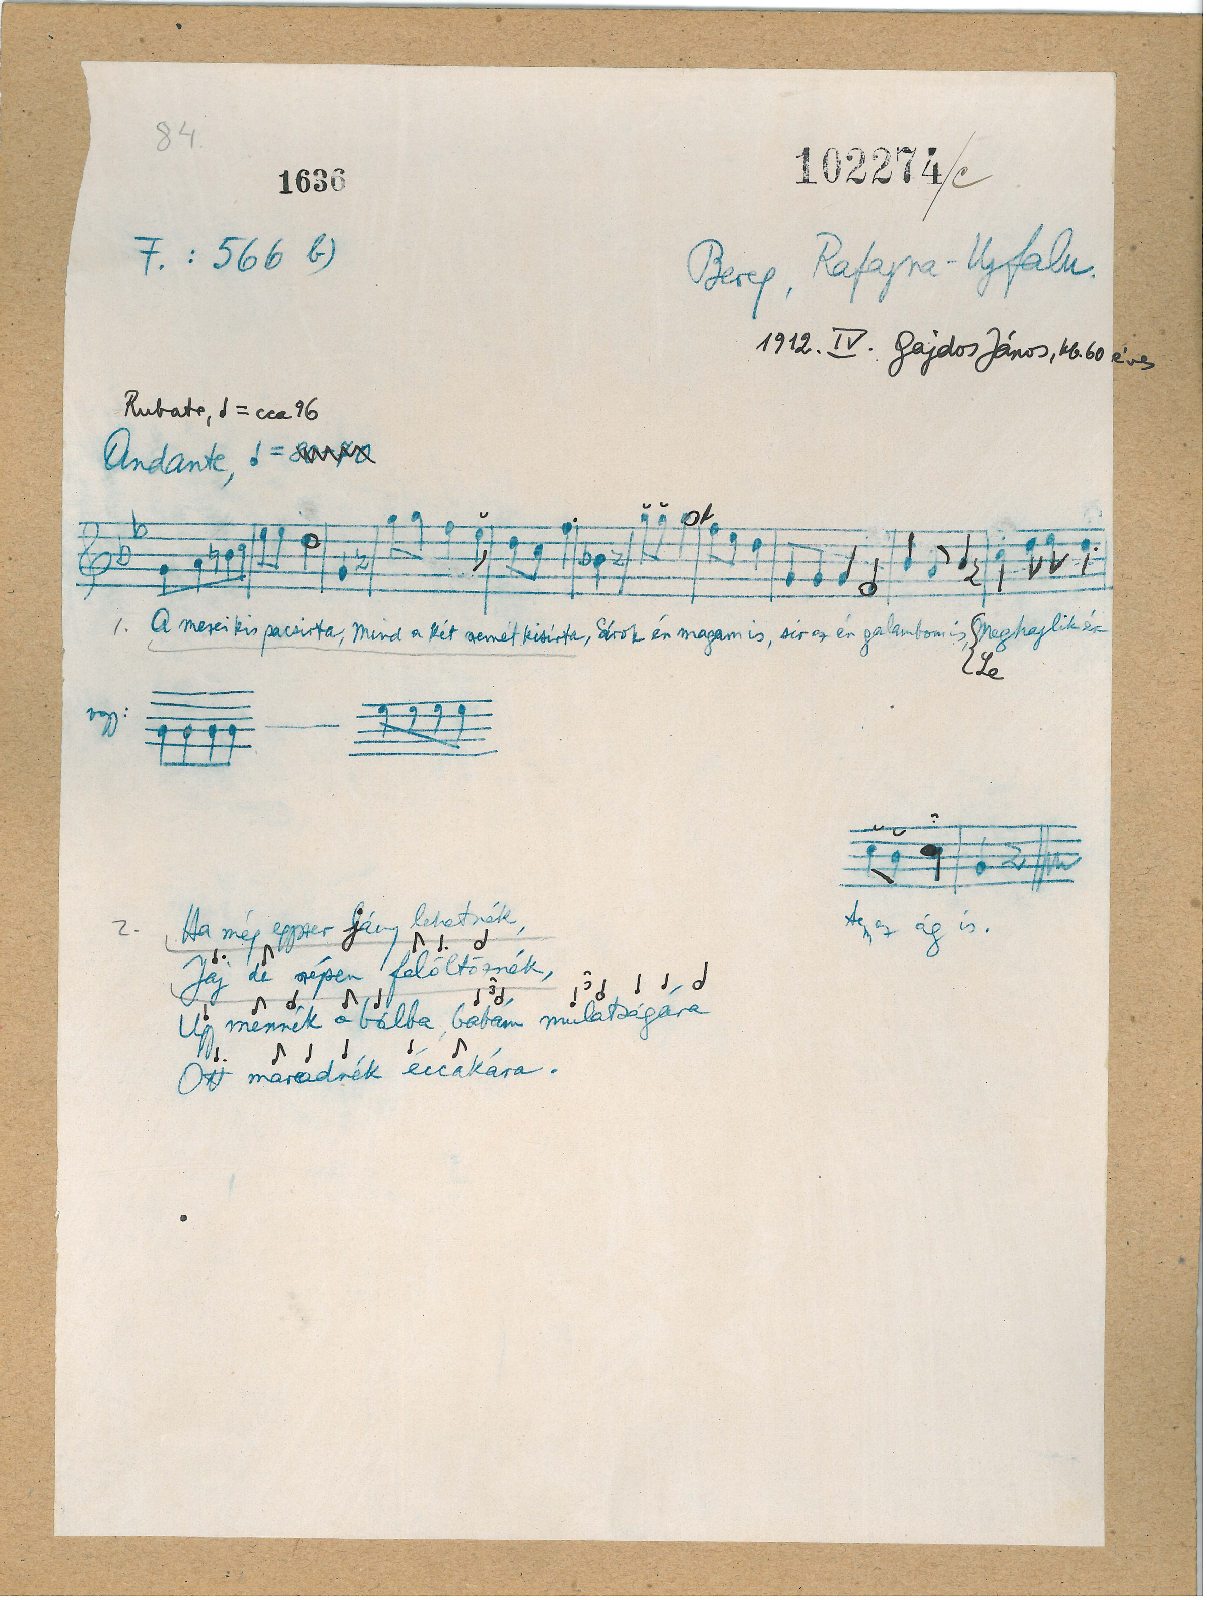 84.
1636
102274/c
F. : 566 b)
Bereg, Rafajna-Ujfalu.
1912. IV. Gajdos János, kb. 60 éves
Rubato, ♩ = cca 96
Andante, ♩ =
1. A mezei kis pacsirta, Mind a két szemét kisírta, Sirok én magam is, sir az én galambom is, Meghajlik ér-
Le
vagy:
az ág is.
2. Ha még eggyszer jány lehetnék,
Jaj de szépen felöltöznék,
Ugy mennék a bálba babám mulatságára
Ott maradnék éccakára.